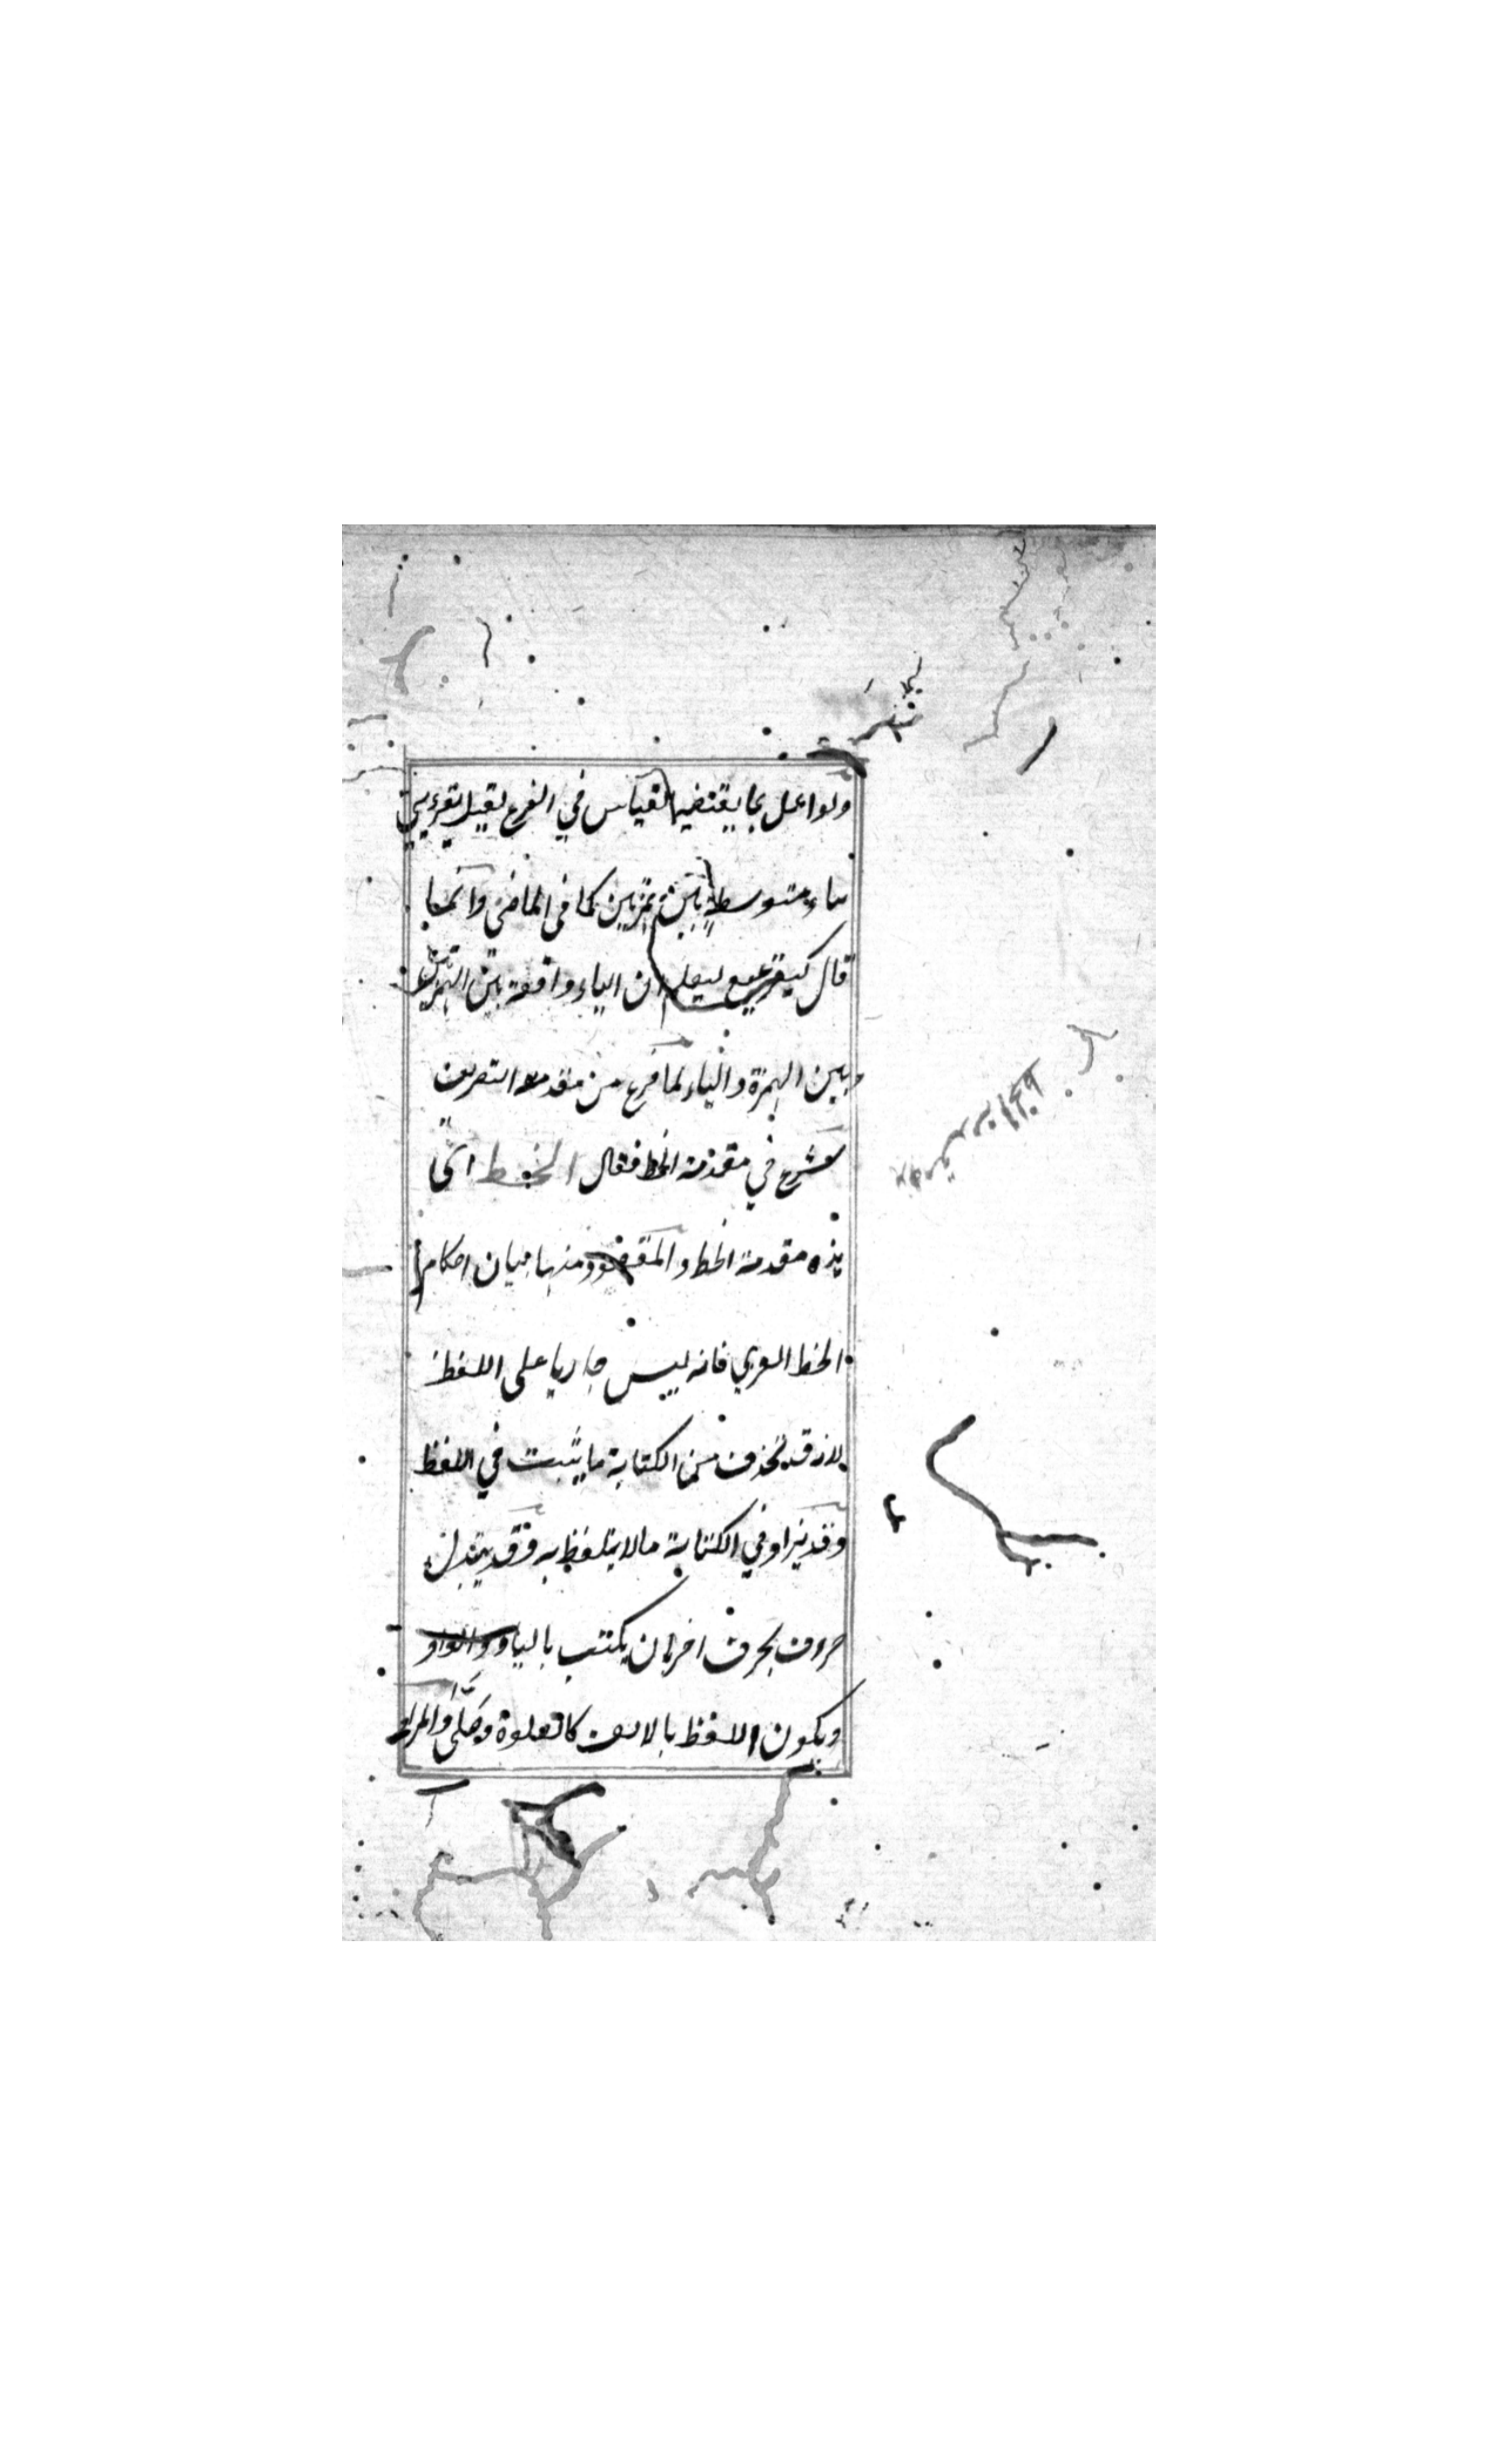 ولو اعمل بما يقتضيه القياس في الفرع لقيل يقرءيي
بياء متوسطة بين همزتين كما في الماضي وانما
قال كيقرعيع ليعلم ان الياء واقعة بين الهمزتين
وبين الهمزة والياء لما فرغ من مقدمة التصريف
شرع في مقدمة الخط فقال الخط اي
هذه مقدمة الخط والمقصود منها بيان احكام
الخط العربي فانه ليس جاريا على اللفظ
لانه قد يحذف من الكتابة ما يثبت في اللفظ
وقد يزاد في الكتابة ما لا يتلفظ به وقد يتبدل
حروف بحرف اخر بان يكتب بالياء والواو
ويكون اللفظ بالالف كالصلوة وصلى والمراد